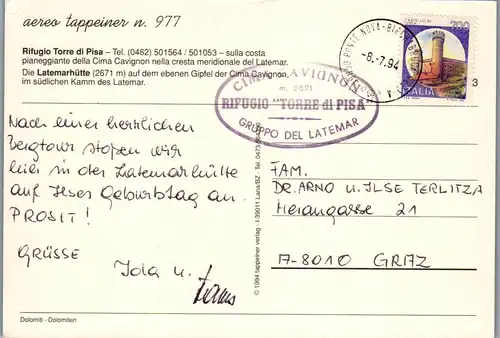 aereo tappeiner n. 977
Rifugio Torre di Pisa – Tel. (0462) 501564 / 501053 – sulla costa
pianeggiante della Cima Cavignon nella cresta meridionale del Latemar.
Die Latemarhütte (2671 m) auf dem ebenen Gipfel der Cima Cavignon,
im südlichen Kamm des Latemar.
CIMA CAVIGNON
m. 2671
RIFUGIO "TORRE di PISA"
GRUPPO DEL LATEMAR
PONTE NOVA
-8.-7.94
700
ITALIA
3
Nach einer herrlichen
Bergtour stoßen wir
hier in der Latemarhütte
auf Ilses Geburtstag an.
PROSIT!
GRÜSSE
Ida u.
FAM.
DR. ARNO u. ILSE TERLITZA
Merangasse 21
A-8010 GRAZ
© 1994 tappeiner verlag - I-39011 Lana/BZ - Tel. 0473-
Dolomiti - Dolomiten